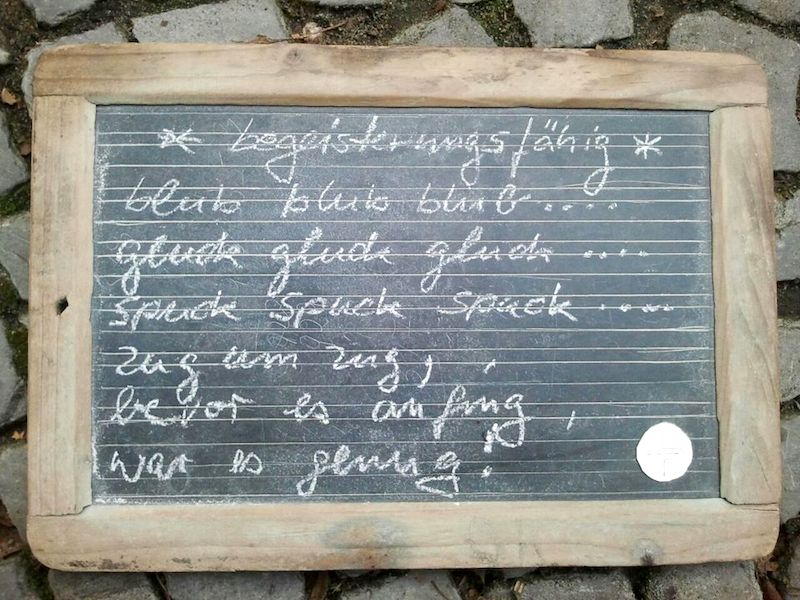 * begeisterungsfähig *
blub blub blub.....
gluck gluck gluck ....
spuck spuck spuck .....
zug um zug,
bevor es anfing,
war es genug!